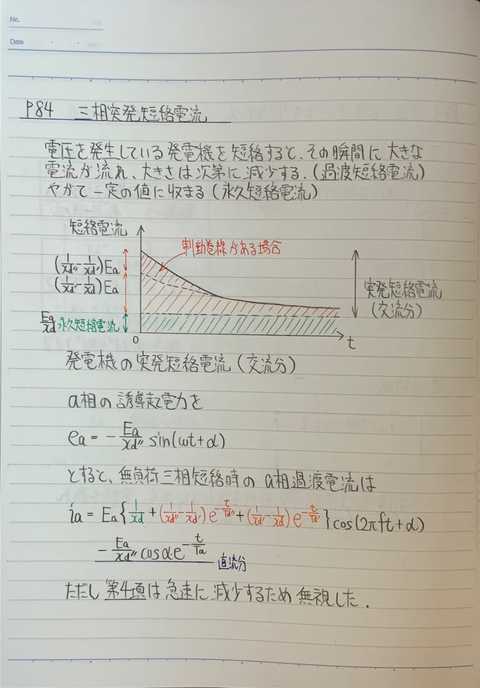 No.
Date
P84 三相突発短絡電流
電圧を発生している発電機を短絡すると、その瞬間に大きな
電流が流れ、大きさは次第に減少する。(過渡短絡電流)
やがて一定の値に収まる(永久短絡電流)
短絡電流
制動巻線がある場合
(1/xd'' - 1/xd')Ea
(1/xd' - 1/xd)Ea
突発短絡電流
(交流分)
Ea/xd 永久短絡電流
0
t
発電機の突発短絡電流(交流分)
a相の誘導起電力を
ea = - Ea/xd'' sin(ωt+α)
とすると、無負荷三相短絡時のa相過渡電流は
ia = Ea{1/xd + (1/xd'' - 1/xd')e^-t/Td'' + (1/xd' - 1/xd)e^-t/Td'}cos(2πft+α)
- Ea/xd'' cosαe^-t/Ta 直流分
ただし第4項は急速に減少するため無視した.